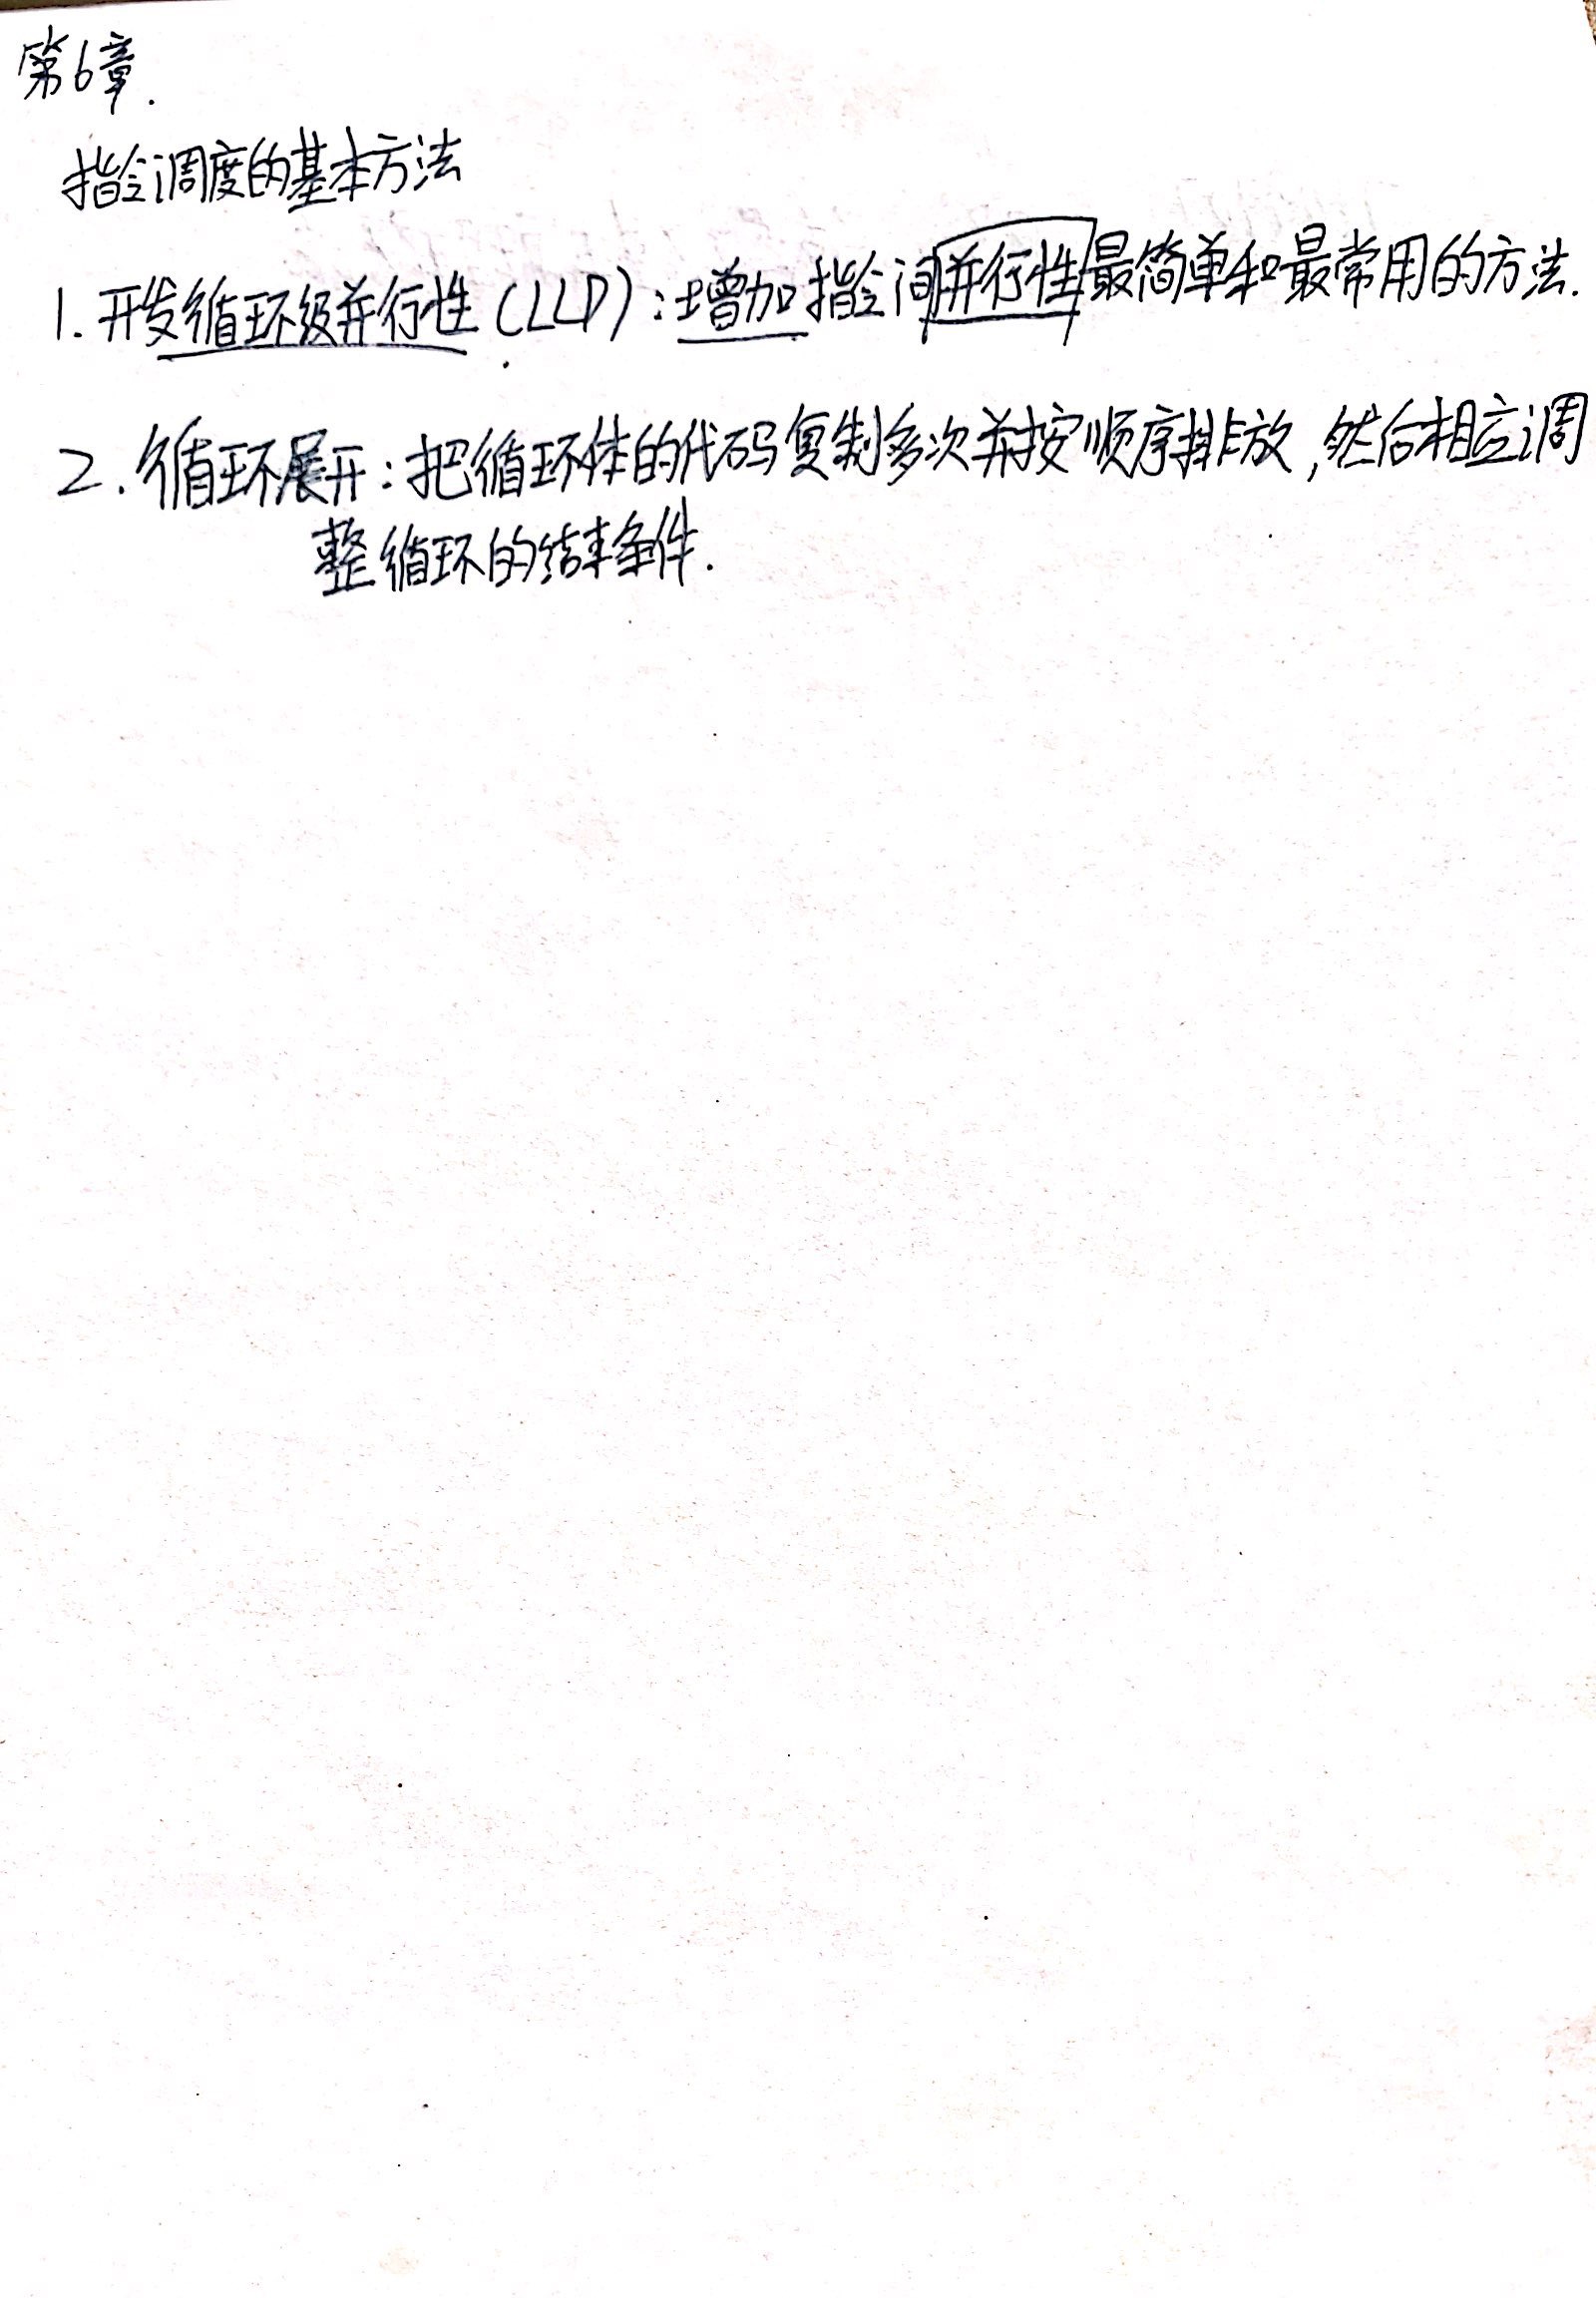 第6章.
指令调度的基本方法
1. 开发循环级并行性(LLP):增加指令间并行性最简单和最常用的方法.
2. 循环展开:把循环体的代码复制多次并按顺序排放,然后相应调
整循环的结束条件.